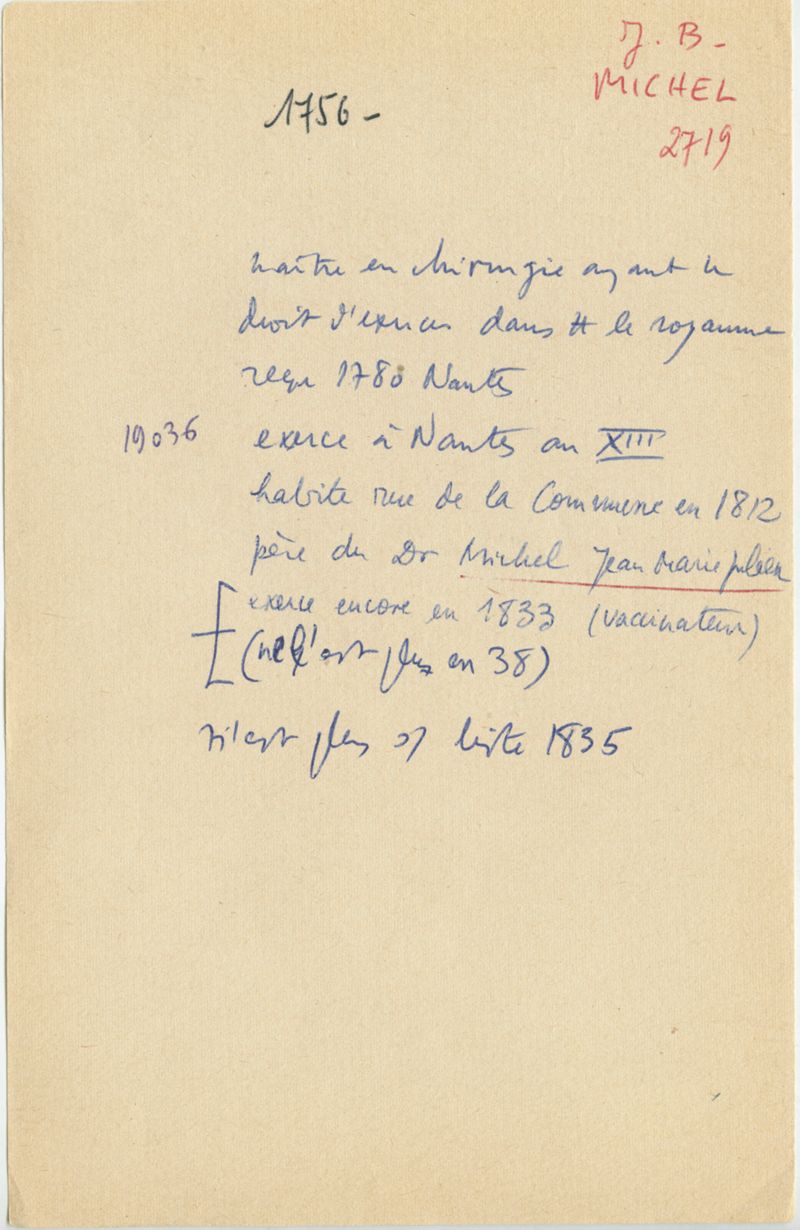 J. B.
MICHEL
2719
1756 -
maître en chirurgie ayant le
droit d'exercer dans tt le royaume
reçu 1780 Nantes
19036 exerce à Nantes an XIII
habite rue de la Commune en 1812
père du Dr Michel Jean Marie Julien
exerce encore en 1833 (vaccinateur)
(ne l'est plus en 38)
n'est plus s/ liste 1835